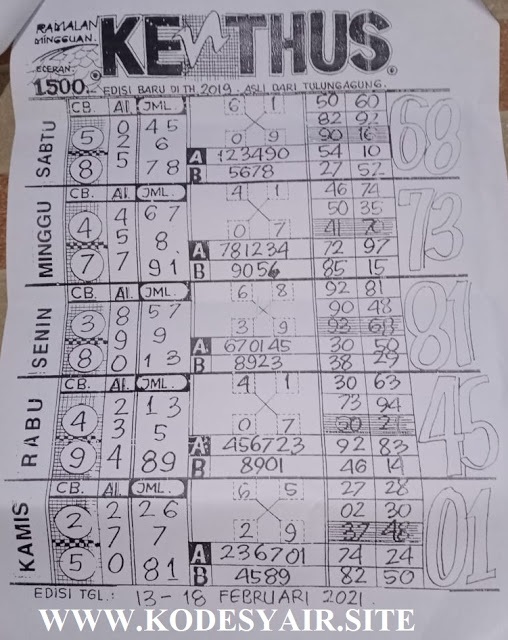 RAMALAN MINGGUAN.
KENTHUS.
ECERAN.
1.500.
EDISI BARU DI TH, 2019. ASLI DARI TULUNGAGUNG.
SABTU
CB. AI. JML.
5 8
0 2 5
45
6
78
6 1
0 9
A 123490
B 5678
50 60
82 92
90 16
54 10
27 52
68
MINGGU
4 7
4 5 7
67
8
91
4 1
0 7
A 781234
B 9056
46 74
50 35
41 70
72 97
85 15
73
SENIN
CB. AI. JML.
3 8
8 9 0
57
9
13
6 8
3 9
A 670145
B 8923
92 81
90 48
93 68
30 50
38 29
81
RABU
CB. AI. JML.
4 9
2 3 4
13
5
89
4 1
0 7
A 456723
B 8901
30 63
73 94
92 83
46 14
45
KAMIS
CB. AI. JML.
2 5
2 7 0
26
7
81
6 5
2 9
A 236701
B 4589
27 28
02 30
37 48
74 24
82 50
01
EDISI TGL.: 13 - 18 FEBRUARI 2021.
WWW.KODESYAIR.SITE